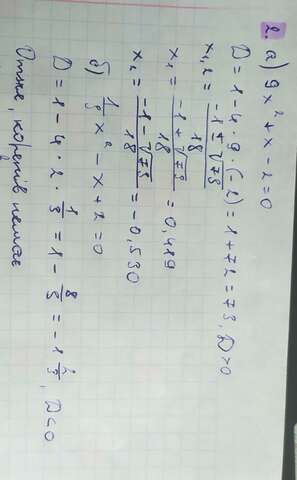 2. а) 9x² + x - 2 = 0
D = 1 - 4 · 9 · (-2) = 1 + 72 = 73, D>0
x₁,₂ = (-1 ± √73)/18
x₁ = (-1 + √73)/18 = 0,419
x₂ = (-1 - √73)/18 = -0,530
б) 1/3 x² - x + 2 = 0
D = 1 - 4 · 2 · 1/3 = 1 - 8/3 = -1 2/3, D<0
Отже, коренів немає